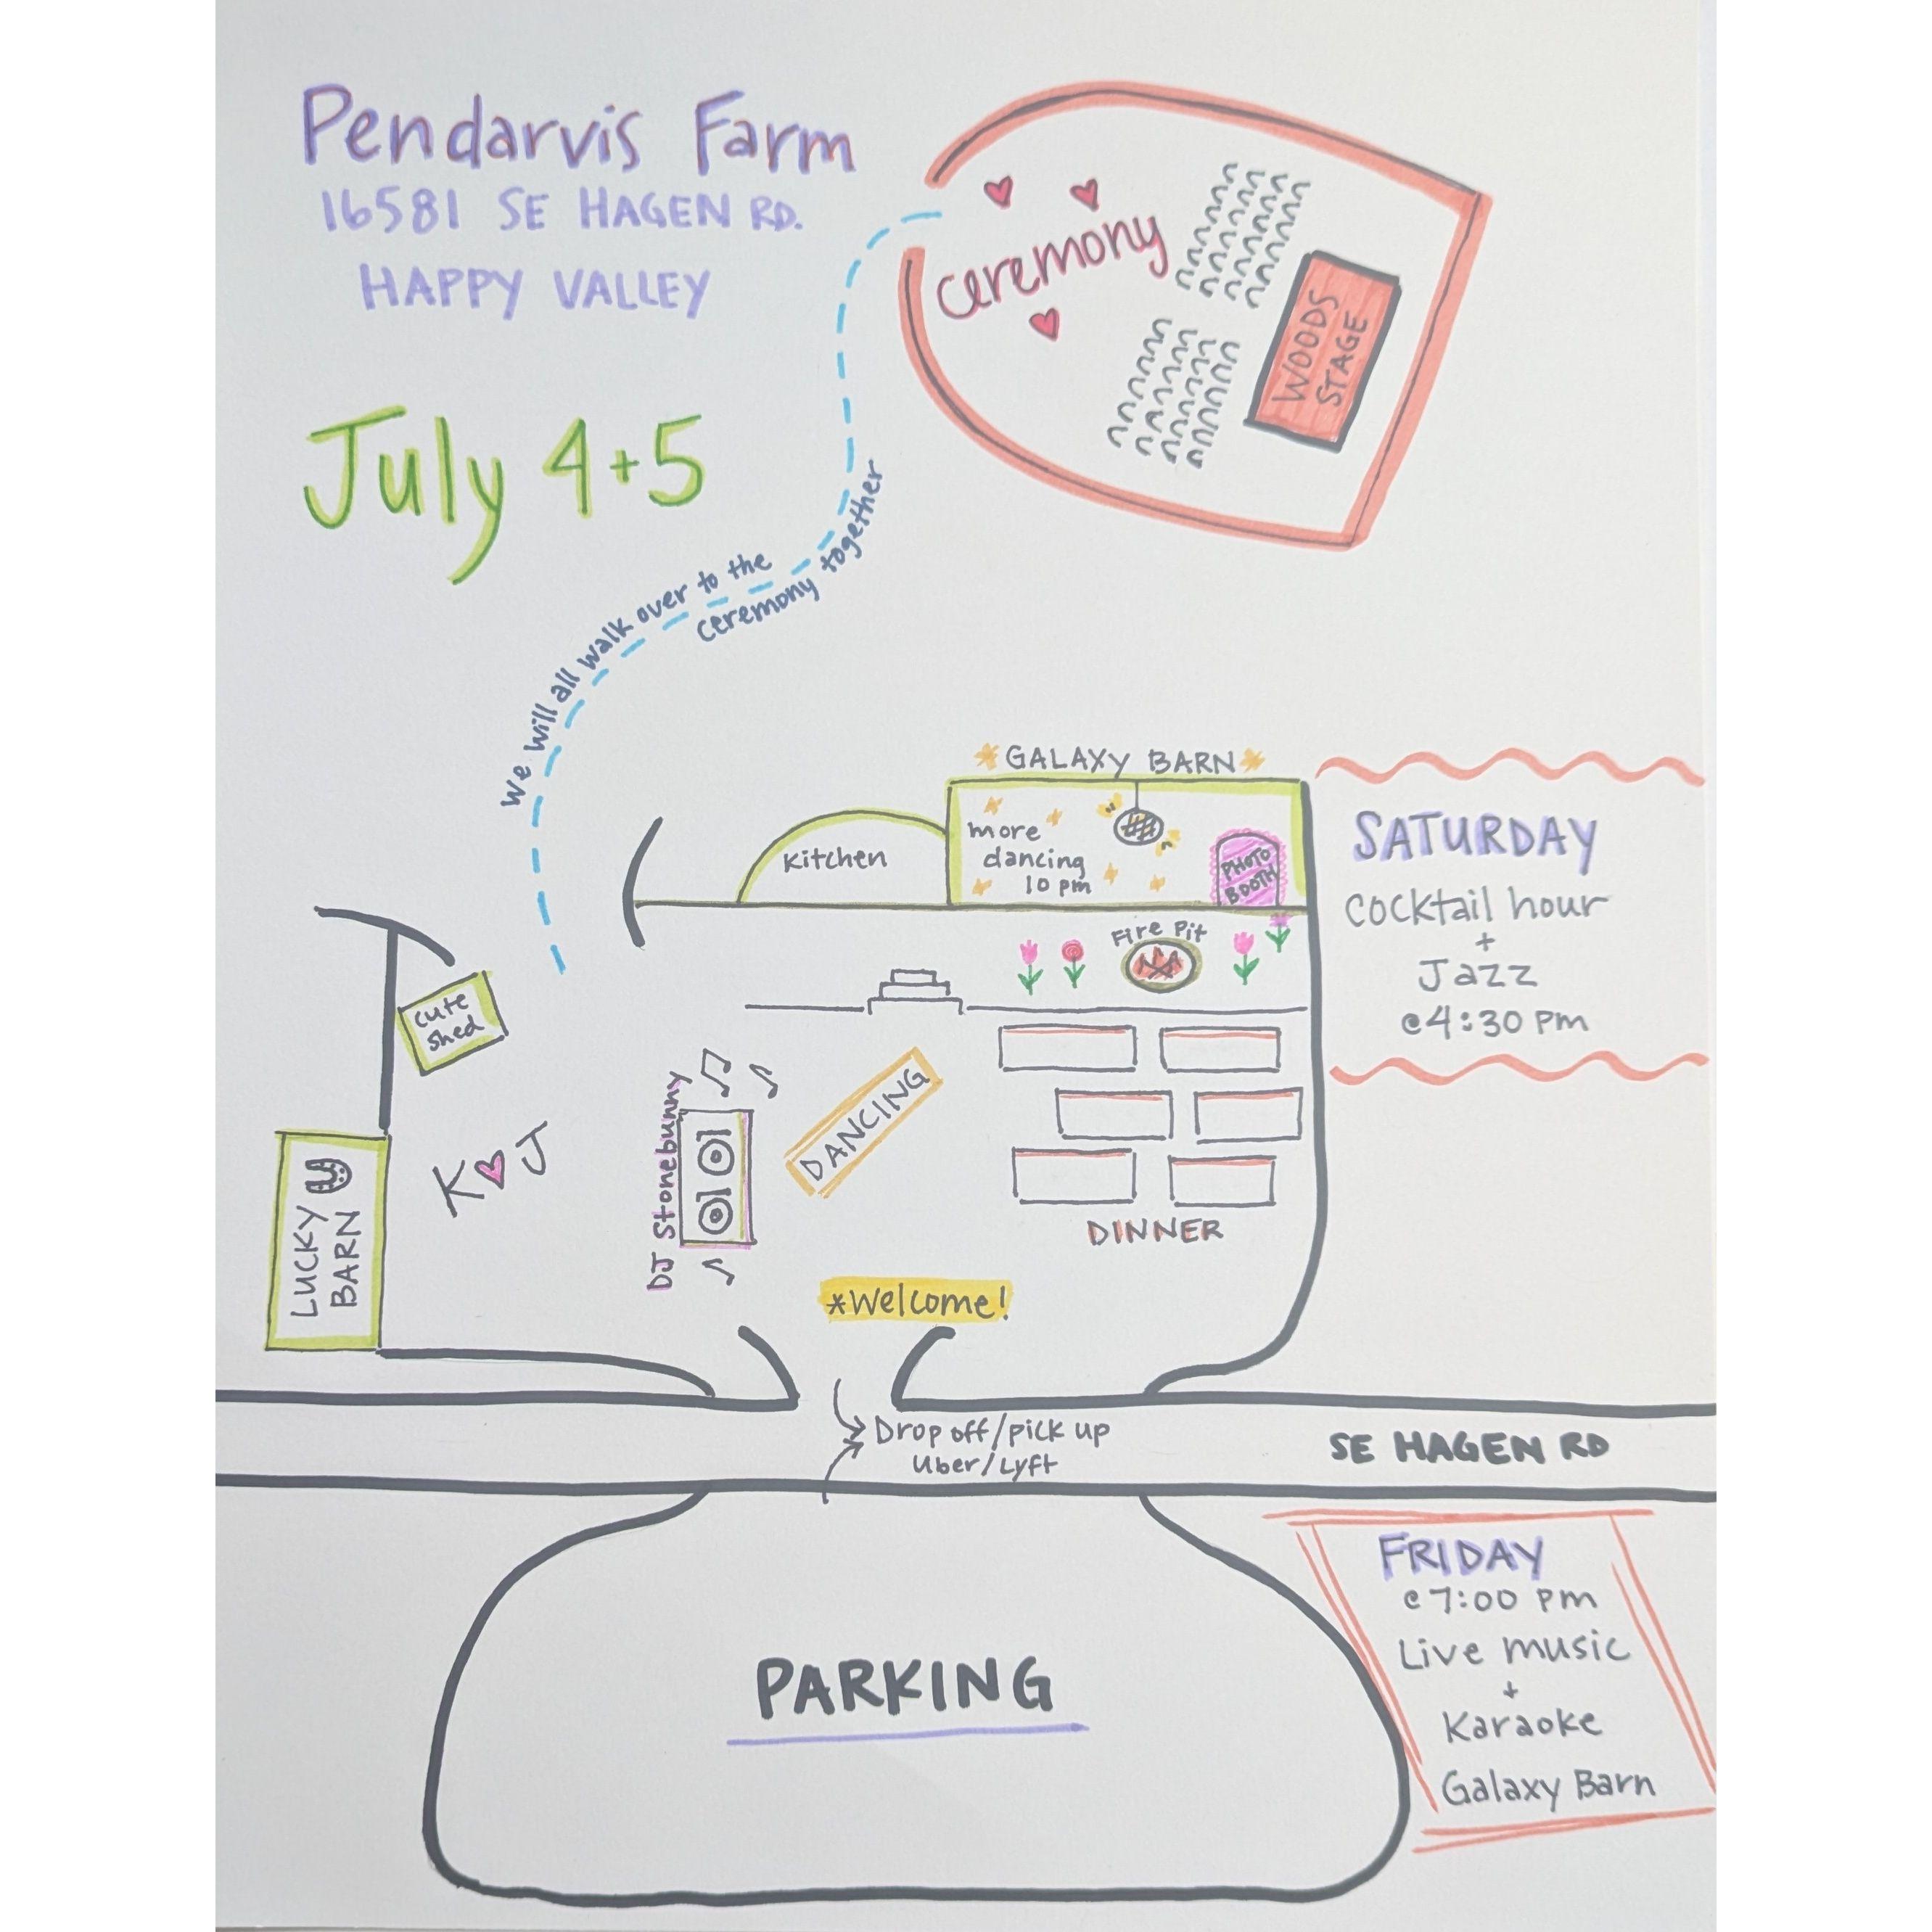 Pendarvis Farm
16581 SE HAGEN RD.
HAPPY VALLEY
July 4+5
ceremony
WOODS
STAGE
we will all walk over to the
ceremony together
GALAXY BARN
more
dancing
10 pm
PHOTO
BOOTH
Kitchen
Fire Pit
SATURDAY
cocktail hour
+
Jazz
@4:30 pm
cute
shed
LUCKY
BARN
K ♥ J
DJ Stonebunny
DANCING
DINNER
*Welcome!
Drop off/pick up
Uber/Lyft
SE HAGEN RD
PARKING
FRIDAY
@7:00 pm
Live music
+
Karaoke
Galaxy Barn